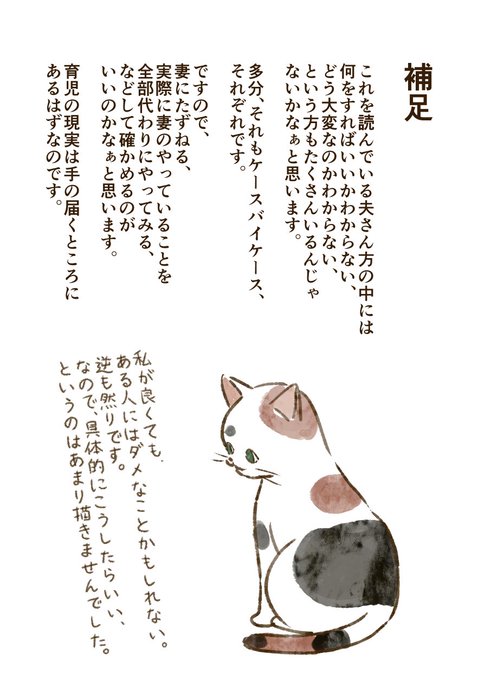 補足
これを読んでいる夫さん方の中には
何をすればいいかわからない、
どう大変なのかわからない、
という方もたくさんいるんじゃ
ないかなぁと思います。
多分、それもケースバイケース、
それぞれです。
ですので、
妻にたずねる、
実際に妻のやっていることを
全部代わりにやってみる、
などして確かめるのが
いいのかなぁと思います。
育児の現実は手の届くところに
あるはずなのです。
私が良くても、
ある人にはダメなことかもしれない。
逆も然りです。
なので、具体的にこうしたらいい、
というのはあまり描きませんでした。